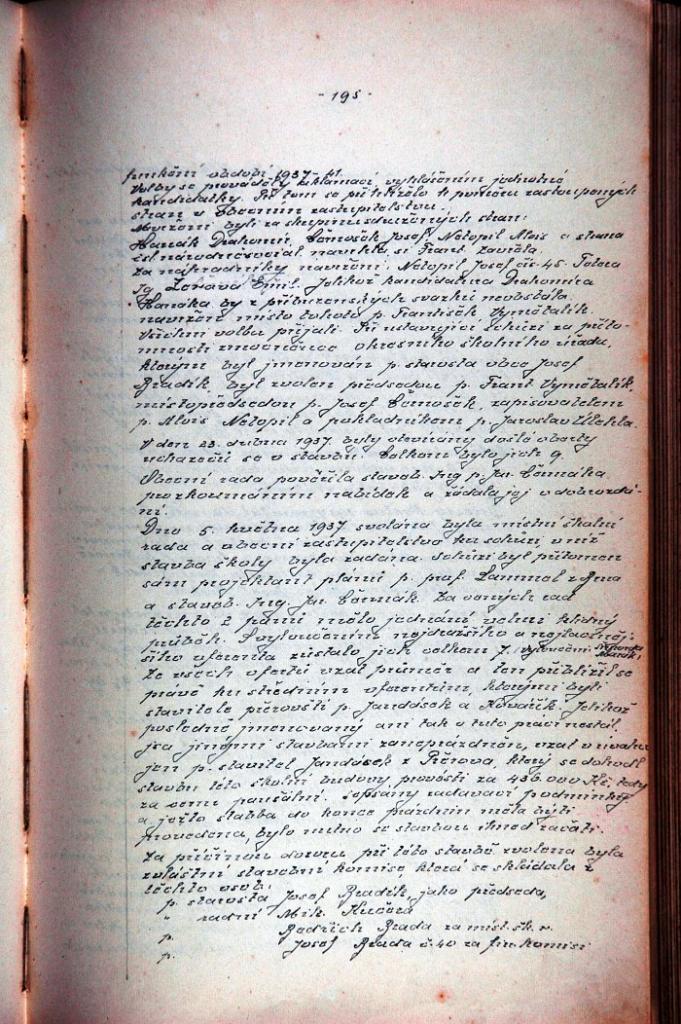 - 195 -
funkční období 1937-41.
Volby se prováděly aklamací, vyhlášením jednotné
kandidátky. Při tom se přihlíželo k poměru zastoupených
stran v obecním zastupitelstvu.
Navrženi byli za skupinu sdružených stran:
Hanák Drahomír, Černošek Josef, Netopil Alois a strana
čsl. národněsociál. navrhla si Frant. Zavřela.
Za náhradníky navrženi: Netopil Josef čís. 45.
Ig. Emil. Jelikož kandidatura Drahomíra
Hanáka by z příbuzenských svazků neobstála
navržen místo tohoto p. František Vymětalík.
Všichni volbu přijali. Při ustavující schůzi za příto-
mnosti zmocněnce okresního školního úřadu,
kterým byl jmenován p. starosta obce Josef
Bradík, byl zvolen předsedou p. Frant. Vymětalík,
místopředsedou p. Josef Černošek, zapisovatelem
p. Alois Netopil a pokladníkem p. Jaroslav Úlehla.
V den 23. dubna 1937. byly otevírány došlé oferty
ucházečů se o stavbu. Celkem bylo jich 9.
Obecní rada pověřila stavob. Ing p. Jar. Čermáka
prozkoumáním nabídek a žádala jej o dobrozdá-
ní.
Dne 5. května 1937 svolána byla místní školní
rada a obecní zastupitelstvo ku schůzi, v níž
stavba školy byla zadána. Schůzi byl přítomen
sám projektant plánů p. prof. Lammel z Brna
a stavob. Ing. Jar. Čermák. Za cenných rad
těchto 2 pánů mělo jednání velmi klidný
průběh. S vyloučením nejdražšího a nejlacině-
šího oferenta zůstalo jich celkem 7. vyloučeni
Ze všech ofertů vzat průměr a ten přiblížil se
právě ku středním oferentům, kterými byli
stavitelé přerovští p. Jandásek a Kovářík. Jelikož
posledně jmenovaný ani tak o tuto práci nestál,
jsa jinými stavbami zaneprázdněn, vzat v úvahu
jen p. stavitel Jandásek z Přerova, který se dohodl
stavbu této školní budovy provésti za 436.000 Kč, tedy
za cenu paušální. Sepsány zadávací podmínky
a ježto stavba do konce prázdnin měla býti
provedena, bylo nutno se stavbou ihned začíti.
Za příčinou dozoru při této stavbě zvolena byla
zvláštní stavební komise, která se skládala z
těchto osob:
p. starosta Josef Bradík, jako předseda,
" radní Mik. Kučera
p. Bedřich Brada za míst. šk. r.
p. Josef Brada č. 40 za fin. komisi